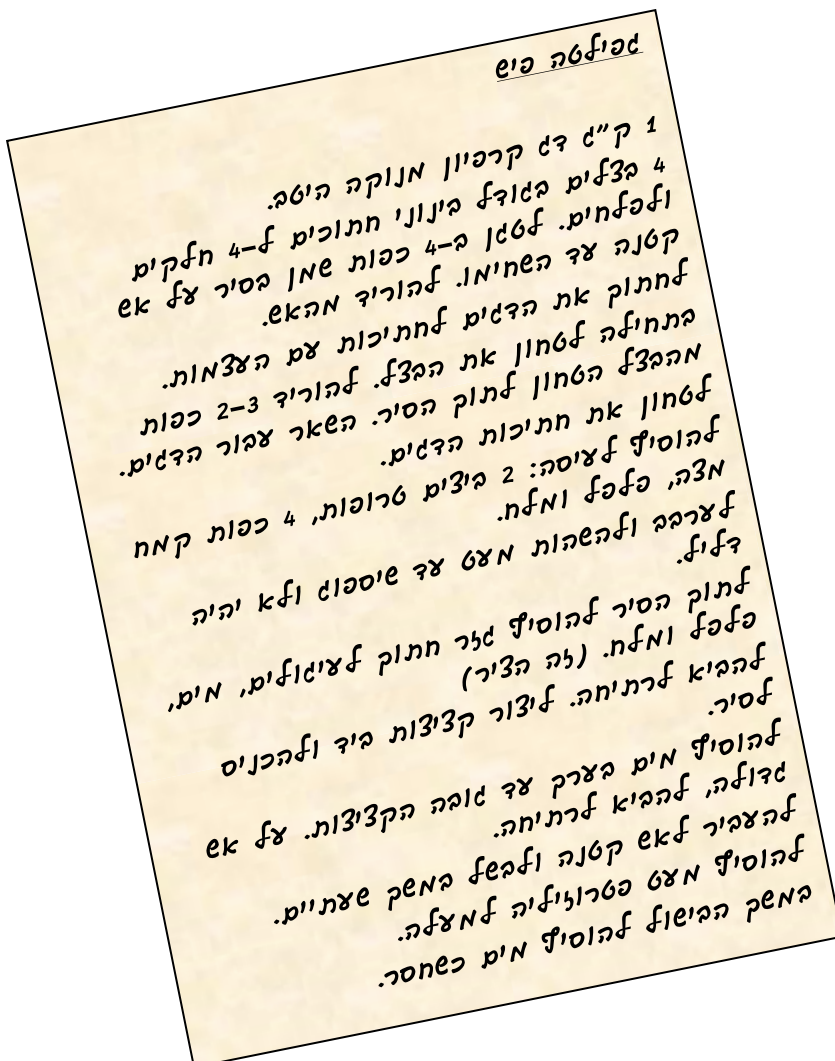 גפילטה פיש
1 ק"ג דג קרפיון מנוקה היטב.
4 בצלים בגודל בינוני חתוכים ל-4 חלקים
ולפלחים. לטגן ב-4 כפות שמן בסיר על אש
קטנה עד השחימו. להוריד מהאש.
לחתוך את הדגים לחתיכות עם העצמות.
בתחילה לטחון את הבצל. להוריד 2-3 כפות
מהבצל הטחון לתוך הסיר. השאר עבור הדגים.
לטחון את חתיכות הדגים.
להוסיף לעיסה: 2 ביצים טרופות, 4 כפות קמח
מצה, פלפל ומלח.
לערבב ולהשהות מעט עד שיספוג ולא יהיה
דליל.
לתוך הסיר להוסיף גזר חתוך לעיגולים, מים,
פלפל ומלח. (זה הציר)
להביא לרתיחה. ליצור קציצות ביד ולהכניס
לסיר.
להוסיף מים בערך עד גובה הקציצות. על אש
גדולה, להביא לרתיחה.
להעביר לאש קטנה ולבשל במשך שעתיים.
להוסיף מעט פטרוזיליה למעלה.
במשך הבישול להוסיף מים כשחסר.